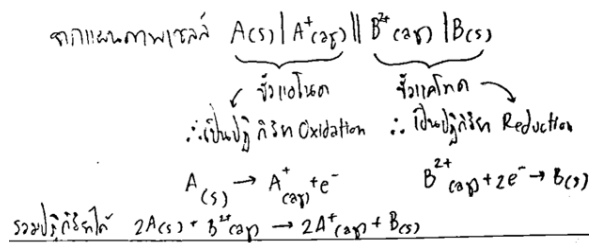 จากแผนภาพเซลล์ A(s) | A⁺(aq) || B²⁺(aq) | B(s)
ขั้วแอโนด ขั้วแคโทด
∴ เป็นปฏิกิริยา Oxidation ∴ เป็นปฏิกิริยา Reduction
A(s) → A⁺(aq) + e⁻ B²⁺(aq) + 2e⁻ → B(s)
รวมปฏิกิริยาได้ 2A(s) + B²⁺(aq) → 2A⁺(aq) + B(s)